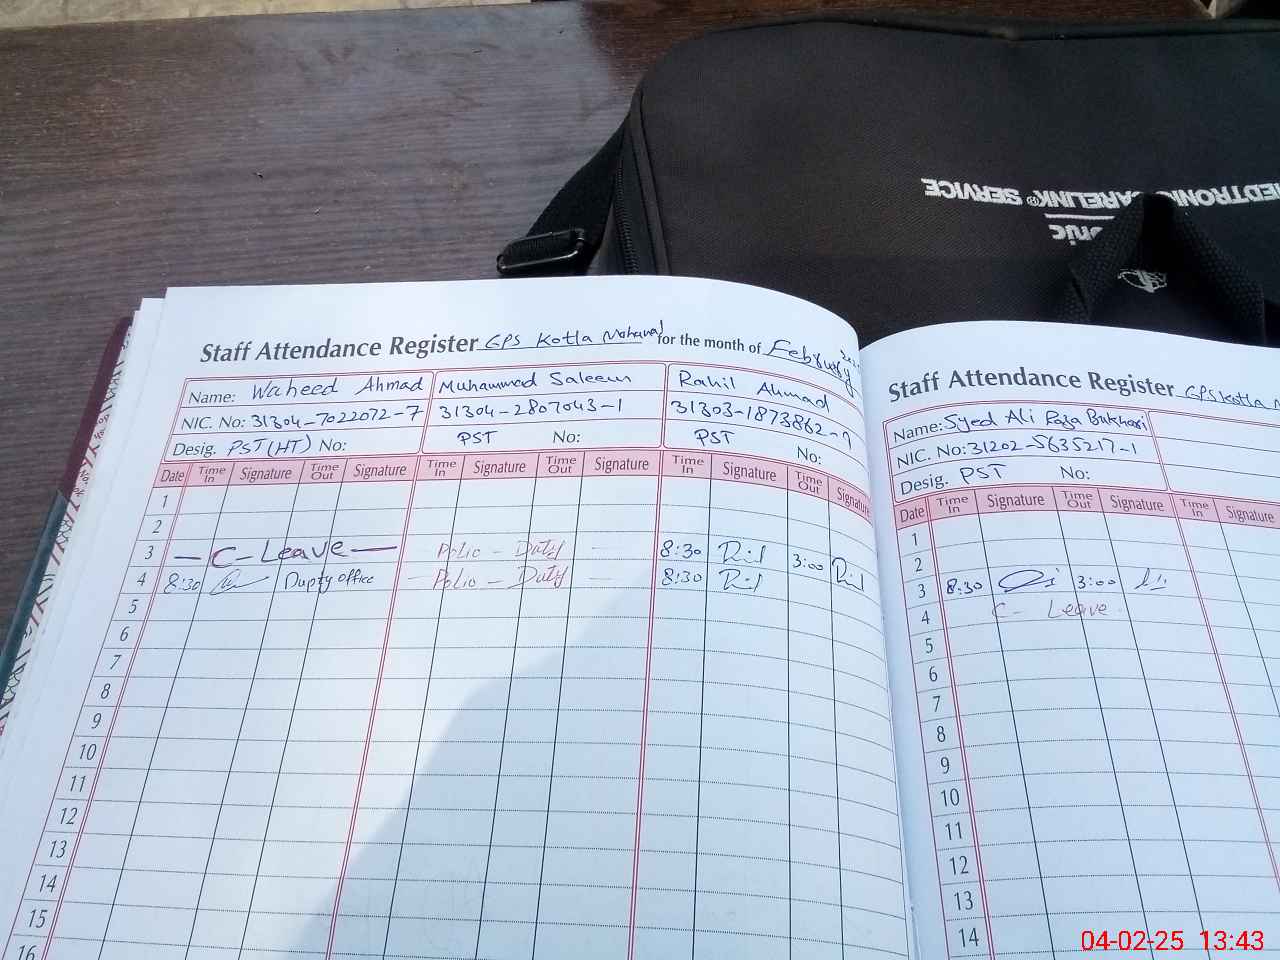 MEDTRONIC CARELINK® SERVICE
Staff Attendance Register GPS Kotla Mohanad for the month of February
Name: Waheed Ahmad Muhammad Saleem Rahil Ahmad
NIC. No: 31304-7022072-7 31304-2807043-1 31303-1873862-9
Desig. PST(HT) No: PST No: PST No:
Date Time In Signature Time Out Signature Time In Signature Time Out Signature Time In Signature Time Out Signature
1
2
3 — C-Leave — Polio - Duty — 8:30 3:00
4 8:30 Dupty office — Polio - Duty — 8:30
5
6
7
8
9
10
11
12
13
14
15
16
Staff Attendance Register GPS Kotla
Name: Syed Ali Raza Bukhari
NIC. No: 31202-5635217-1
Desig. PST No:
Date Time In Signature Time Out Signature Time In Signature
1
2
3 8:30 3:00
4 C- Leave
5
6
7
8
9
10
11
12
13
14
04-02-25 13:43